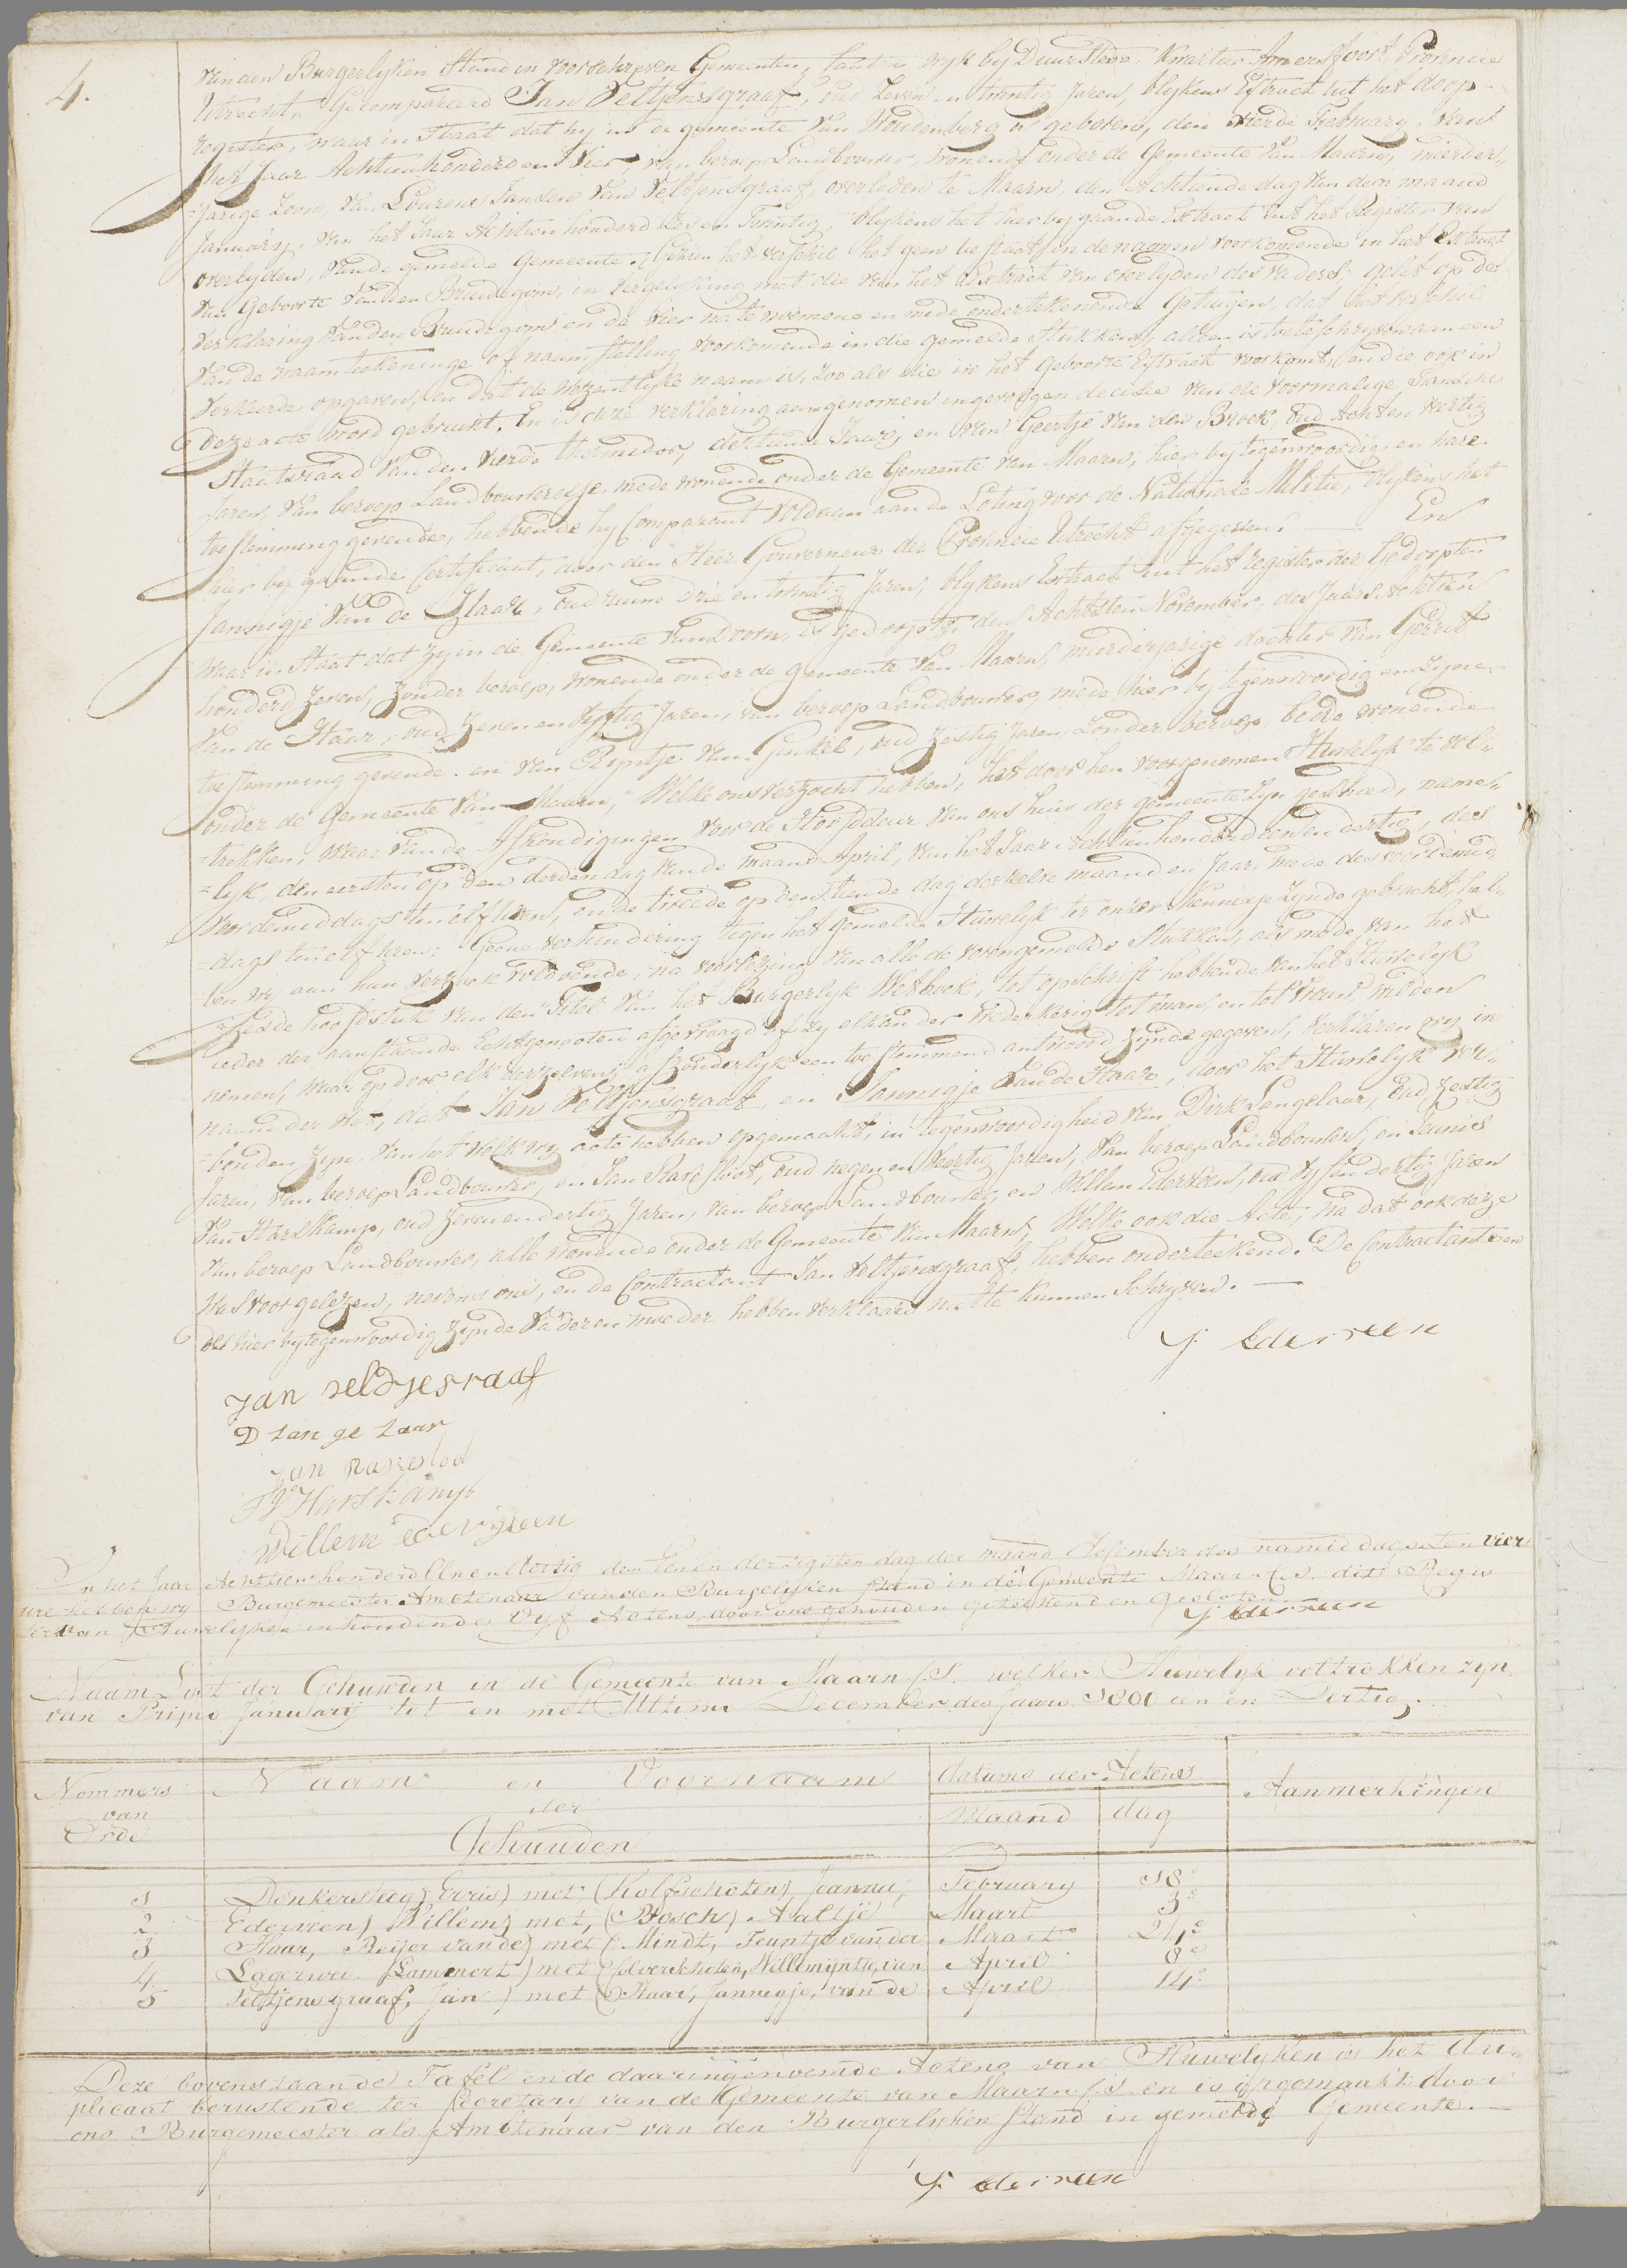 4.
van den Burgerlyken Stand in voorschreven Gemeenten, Canton wyk by Duurstede, Kwartier Amersfoort, Provincie
Utrecht, Gecompareerd Jan Veltjensgraaf, oud Zeven en twintig Jaren, blykens Extract uit het doop-
register, waar in Staat dat hy in de gemeente van Woudenberg is geboren, den vierde February van
het Jaar Achtienhonderd en Vier, van beroep Landbouwer, wonende onder de Gemeente van Maarn, meerder-
=jarige Zoon, van Lourens Jansen van Veltjensgraaf, overleden te Maarn, den Achtiende dag van den maand
January, van het Jaar Achtien honderd Zes en Twintig, blykens het hier bygaande Extract uit het Register van
overlyden, van de gemelde Gemeente, Gezien het verschil het geen bestaat in de naamen voorkomende in het Extract
van Geboorte van den Bruidegom, in vergelyking met die van het Extract van overlyden des vaders gelet op de
verklaring van den Bruidegom en de vier na te noemene en mede ondertekenende Getuigen, dat het verschil
van de naamteekeninge of naamstelling voorkomende in die gemelde Stukken, alleen is toeteschryven aan een
verkeerde opgaven, en dat de wezentlyke naam is, zoo als die in het Geboorte Extract voorkomt, en die ook in
deze acte word gebruikt. En is deze verklaring aangenomen ingevolgen decisie van de voormalige Fransche
Staatsraad van den vierde thermidor, dertiende Jaar, en van Geertje van den Broek, oud Acht en veertig
Jaren, van beroep Landbouweresse, mede wonende onder de Gemeente van Maarn, hier by tegenwoordig, en hare
toestemming gevende, hebbende hy Comparant voldaan aan de Loting voor de Nationale Militie, blykens het
hier by gaande Certificaat, door den Heer Gouverneur der Provincie Utrecht afgegeven. — En
Jannigje van de Haar, oud ruim drie en twintig Jaren, blykens Extract uit het register der Gedoopten
waar in Staat dat zy in de Gemeente van Doorn, is gedoopt, den Achtsten November, des Jaars Achtien
honderd Zeven, Zonder beroep, wonende onder de gemeente van Maarn, meerderjarige dochter van Gerrit
van de Haar, oud Zeven en vyftig Jaren, van beroep Landbouwer, mede hier by tegenwoordig en Zyne
toestemming gevende. en van Reyntje van Ginkel, oud Zestig Jaren, Zonder beroep, beide wonende
onder de Gemeente van Maarn, Welke ons verzocht hebben, het door hen voorgenomen Huwelyk te vol=
=trekken, waar van de Afkondigingen voor de Hoofddeur van ons huis der gemeente Zyn geschied, name=
=lyk, den eersten op den derden dag van de maand April, van het Jaar Achtienhonderd een en dertig, des
voordemiddags ten elf uren, en de tweede op den tiende dag derzelve maand en Jaar, mede des voordemid
=dags ten elf uren: Geene verhindering tegen het gemelde Huwelyk ter onzer kennisse Zynde gebracht, heb=
=ben wy aan hun verzoek voldoende, na voorlezing van alle de vorengemelde Stukken, als mede van het
Zesde hoofdstuk van den Titel van het Burgerlyk Wetboek, tot opschrift hebbende van het Huwelyk
ieder der aanstaande Echtgenooten afgevraagd of zy elkander wederkerig tot man en tot vrouw wilden
nemen, waar op door elk derzelven, afzonderlyk een toestemmend antwoord Zynde gegeven, verklaren wy in
naam der wet, dat Jan Veltjensgraaf, en Jannigje van de Haar, door het Huwelyk ver=
=bonden Zyn, van het welk wy acte hebben opgemaakt, in tegenwoordigheid van Dirk Langelaar, oud Zestig
Jaren, van beroep Landbouwer, en Jan Ravesloot, oud negen en veertig Jaren, van beroep Landbouwer, en Teunis
van Harskamp, oud Zeven en dertig Jaren, van beroep Landbouwer, en Willem Ederveen, oud vyf en dertig Jaren
van beroep Landbouwer, alle wonende onder de Gemeente van Maarn, Welke ook die Acte, na dat ook deze
was voorgelezen, nevens ons, en de Contractant Jan Veltjensgraaf, hebben onderteekend. De Contractanten
en hier bytegenwoordig Zynde Vader en moeder hebben verklaard niet te kunnen Schryven. —
J. Ederveen
Jan veldjesraaf
D Langelaar
Jan raveslod
TV Harskamp
Willem Ederveen
In het Jaar Achttienhonderd Een en Dertig den Een en dertigsten dag der maand desember des namiddags ten vier
ure hebben wy Burgemeester Amtenaar van den Burgelyken Stand in de Gemeente Maarn C.S. dit Regis
ter van Huwelyken inhoudende Vyf Actens door ons gehouden geteekend en Gesloten
J Ederveen
Naam Lyst der Gehuwden in de Gemeente van Maarn C.S. welker Huwelyk voltrokken zyn
van Primo January tot en met Ultimo December des Jaars 1800 een en Dertig.
Nommers van Orde
Naam en Voornaam der Gehuwden
datums der Actens
Maand
dag
Aanmerkingen
1 Donkersteeg, Gerris) met (Kolfschoten, Jannu, February 18e
2 Ederveen, Willem) met, (Bosch) Aaltje Maart 3e
3 Haar, Reijer vande) met (Mindt, Teuntje van der Maart 24e
4 Lagerwei (Lammert) met (Solverschoten, Willemyntje, van April 8e
5 Veltjensgraaf, Jan) met (Haar, Jannigje, van de April 14e
Deze bovenstaande Tafel en de daaringenoemde Actens van Huwelyken is het du-
plicaat berustende ter Secretary van de Gemeente van Maarn C.S. en is opgemaakt door
ons Burgemeester als Ambtenaar van den Burgerlyken Stand in gemelde Gemeente. —
J. Ederveen